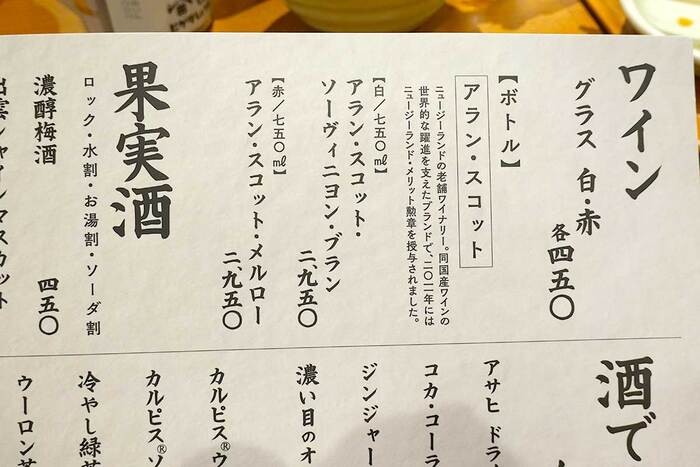 ワイン
グラス 白・赤
各四五〇
【ボトル】
アラン・スコット
ニュージーランドの老舗ワイナリー。同国産ワインの
世界的な躍進を支えたブランドで、二〇一一年には
ニュージーランド・メリット勲章を授与されました。
【白/七五〇㎖】
アラン・スコット・
ソーヴィニヨン・ブラン
二、九五〇
【赤/七五〇㎖】
アラン・スコット・メルロー
二、九五〇
果実酒
ロック・水割・お湯割・ソーダ割
濃醇梅酒
四五〇
出雲シャインマスカット
酒で
アサヒ ドラ
コカ・コーラ
ジンジャー
濃い目のオ
カルピス®ウ
カルピス®ソ
冷やし緑
ウーロン